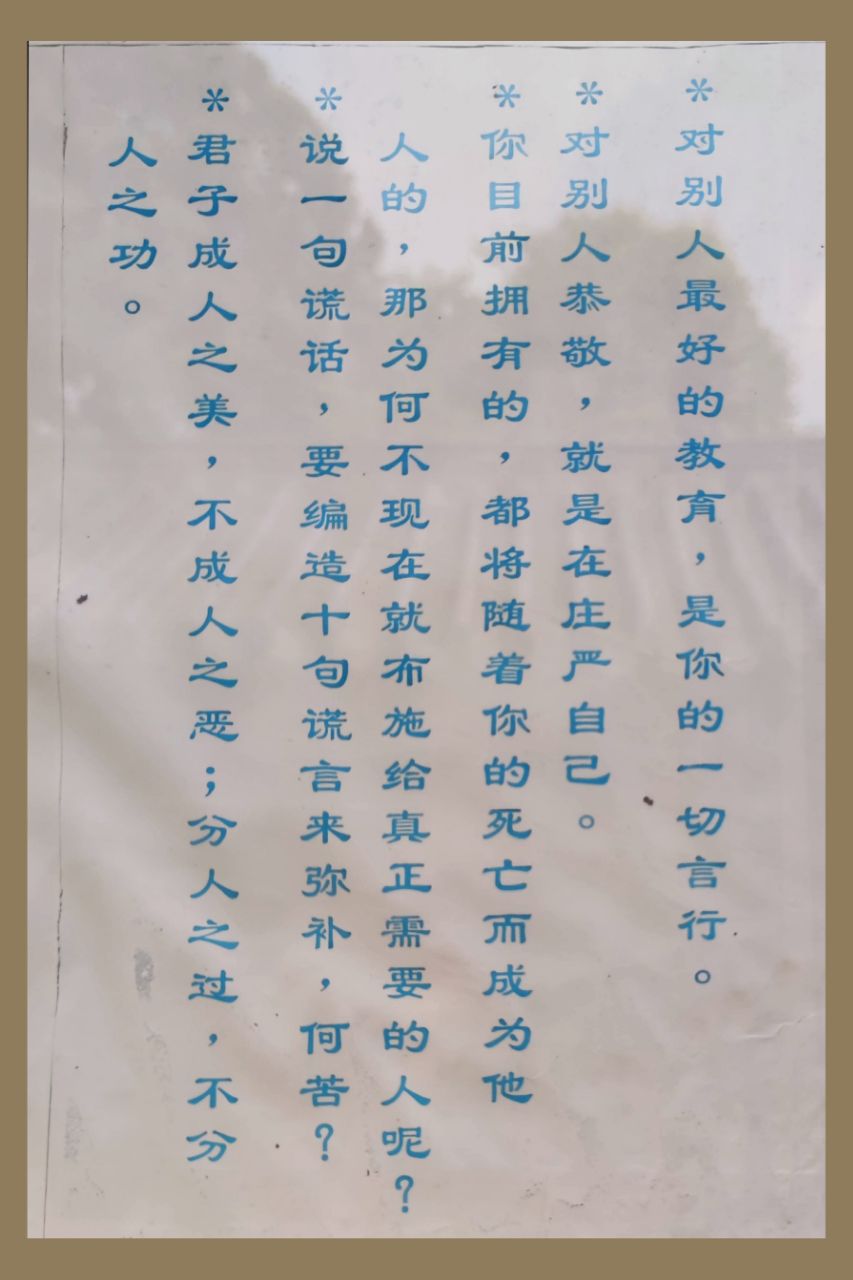 *对别人最好的教育，是你的一切言行。
*对别人恭敬，就是在庄严自己。
*你目前拥有的，都将随着你的死亡而成为他
人的，那为何不现在就布施给真正需要的人呢？
*说一句谎话，要编造十句谎言来弥补，何苦？
*君子成人之美，不成人之恶；分人之过，不分
人之功。